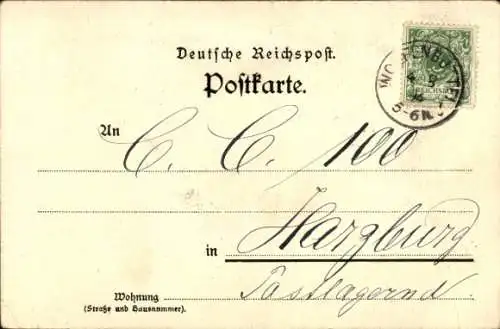 Deutsche Reichspost.
Postkarte.
REICHSPOST
5-6N.
An
C. C. 100
in Harzburg
Postlagernd
Wohnung
(Straße und Hausnummer).